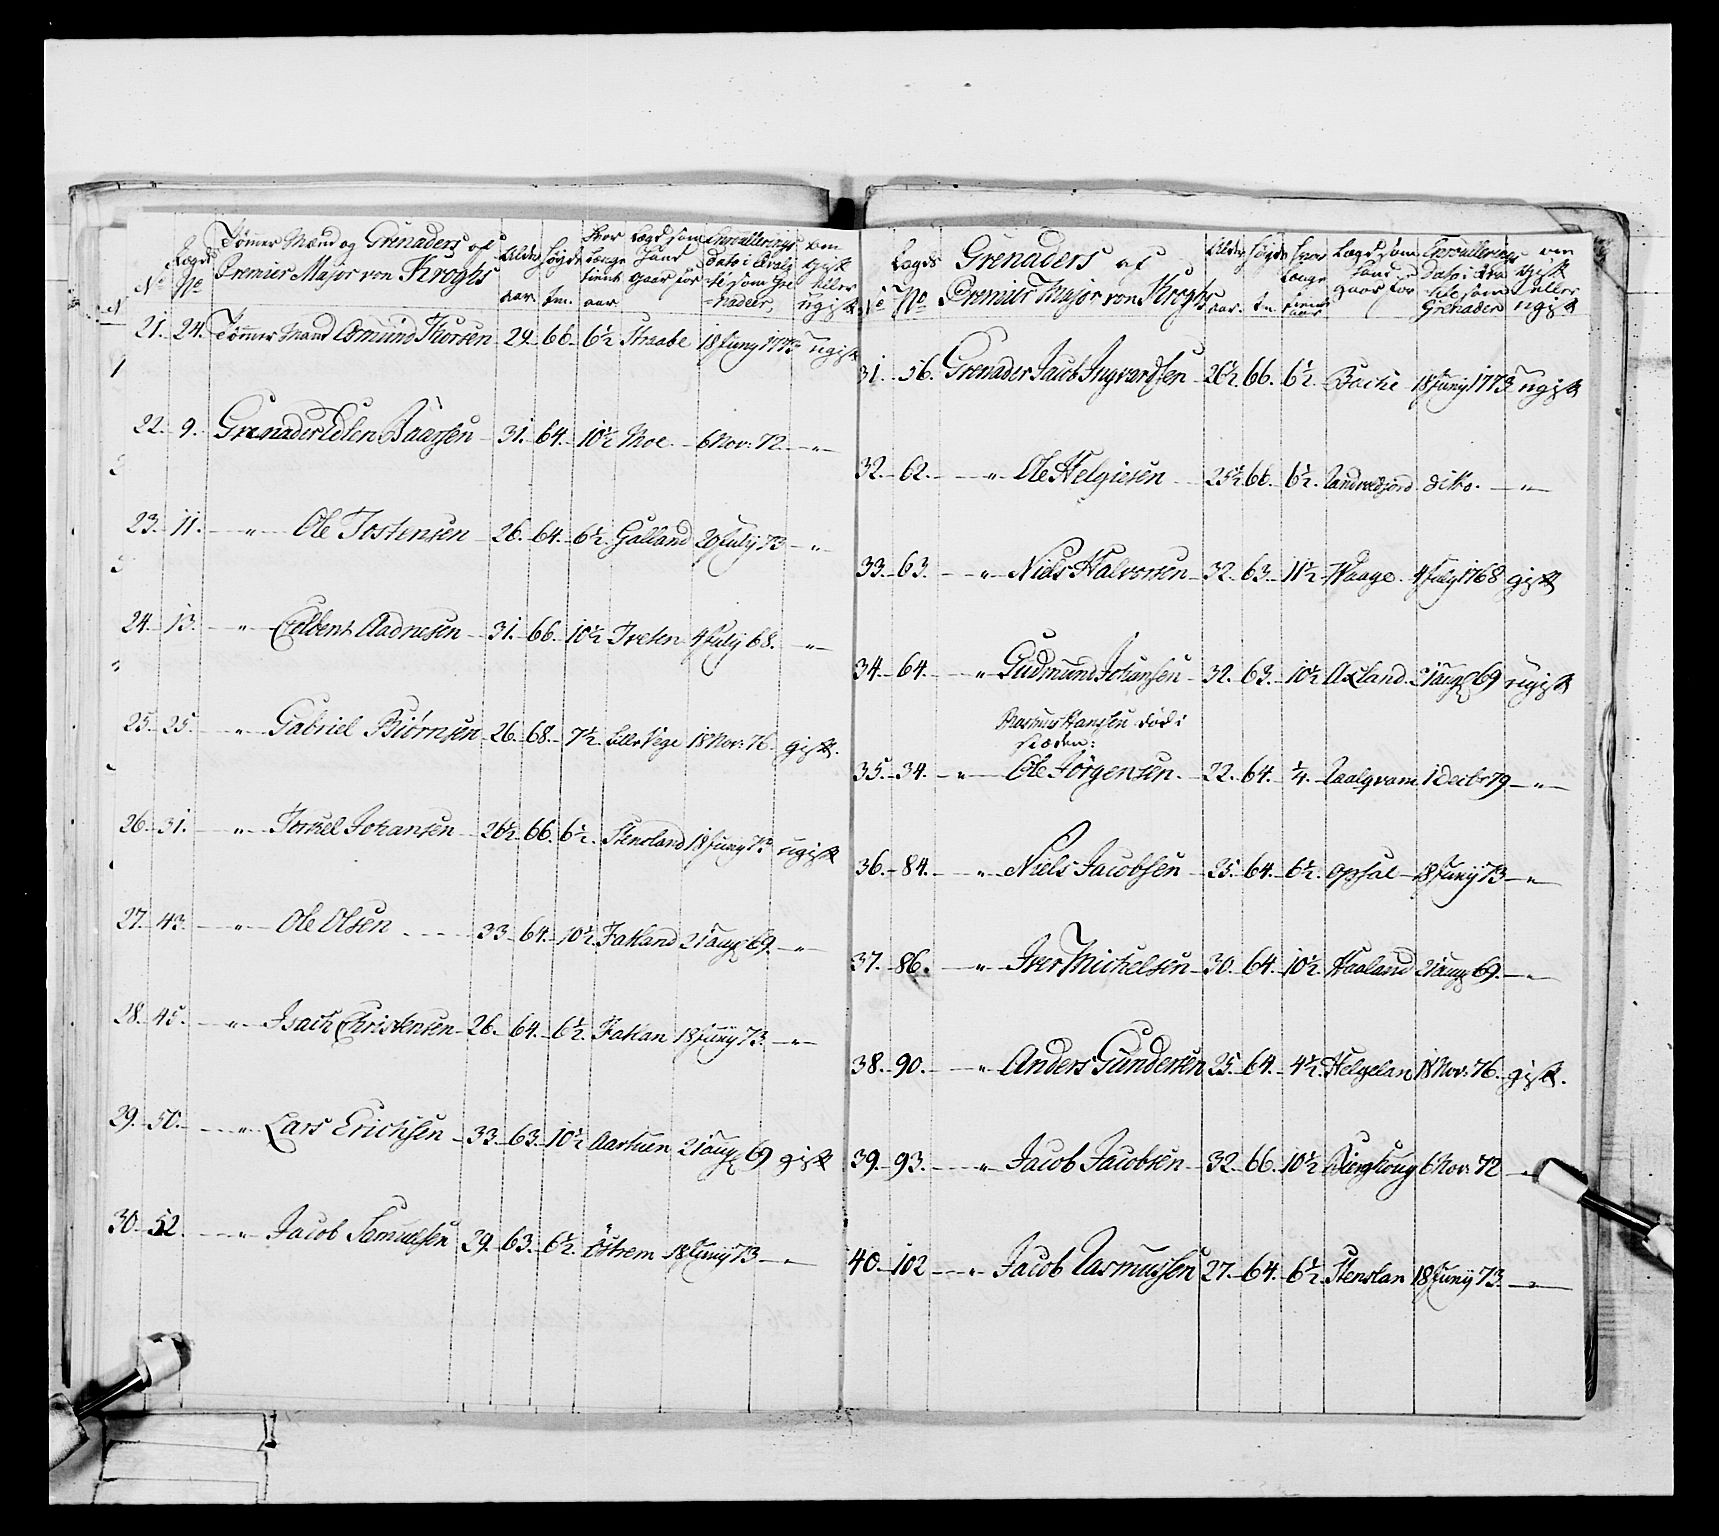 Tømmer Mænd og Grenaders af
Premier Major von Kroghs
No
Lægds No
Alder aar
Høyde tm.
Hvor længe tient aar
Lægd som Hand gaar for
Inroullerings Dato i Rulle som Grenadeer,
om gift eller ugift
21. 24. Tømmer Mand Asmund Thorsen 29. 66. 6½ Straabe 18 Juny 1773 ugift
22. 9. Grenader Edlen Baarsen 31. 64. 10½ Moe 6 Nov: 72. — " —
23. 11. — " — Ole Tostensen 26. 64. 6½ Galland 20 July 73 — " —
24. 13. — " — Elbert Aadnesen 31. 66. 10½ Treten 4 July 68. — " —
25. 25. " Gabriel Biørnsen 26. 68. 7½ Lille Vege 18 Nov: 76. gift.
26. 31. — " — Torkel Johansen 26½ 66. 6½ Stensland 18 Juny 73 ugift
27. 43. — " — Ole Olsen 33. 64. 10½ Fakland 21 Aug 69. — " —
28. 45. — " — Isach Christensen 26. 64. 6½ Faklan 18 Juny 73. — " —
29. 50. — " — Lars Erichsen 33. 63. 10½ Aarhuen 21 Aug 69 gift
30. 52. — " — Jacob Samuelsen 29. 63. 6½ Østrem 18 Juny 73 — " —
Grenaders af
Premier Major von Kroghs
No
Lægds No
Alder aar.
Høyde tm.
Hvor længe tient aar
Lægd som Hand gaar for
Inroullerings Dato i Rulle som Grenader
om gift eller ugift
31. 56. Grenader Jacob Ingvardsen 26½ 66. 6½ Bache 18 Juny 1773 ugift
32. 62. — " — Ole Helgiesen 25½ 66. 6½ ditto. — " —
33. 63. — " — Niels Halvorsen 32. 63. 11½ Waage 4 July 1768 gift
34. 64. — " Gudmund Johansen 32. 63. 10½ Axland 21 Aug 69 ugift
Rasmus Hansen død i
stæden:
35. 34. — " — Ole Jörgensen. 22. 64. ¼. 1 Decbr 79 — " —
36. 84. — " — Niels Jacobsen 25. 64. 6½. Opsal 18 Juny 73 — " —
37. 86. — " — Iver Michelsen 30. 64. 10½ Haaland 21 Aug 69. — " —
38. 90. — " — Anders Gundersen 25. 64. 4½. Helgelan 18 Nov: 76. gift.
39. 93. — " — Jacob Jacobsen 32. 66. 10½ 6 Nov: 72 — " —
40. 102 — " — Jacob Rasmussen 27. 64. 6½ Stenslan 18 Juny 73. — " —